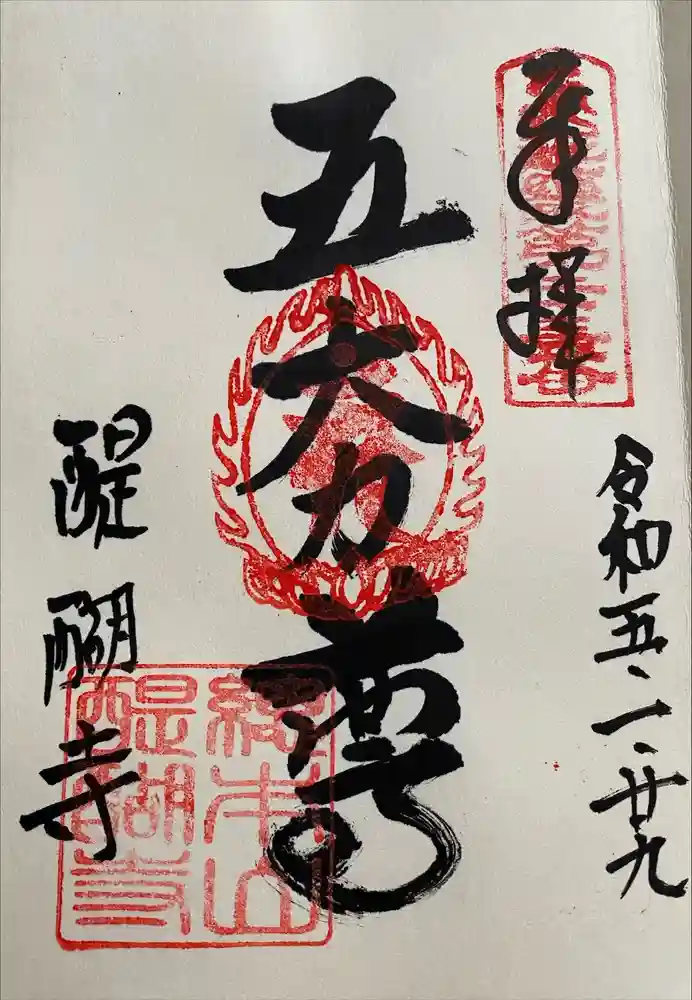 奉拝
令和五、一、廿九
五大力尊
醍醐寺
総本山
醍醐寺